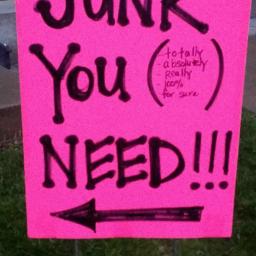 JUNK
YOU
(-totally
- absolutely
- Really
- 100%
for sure)
NEED!!!